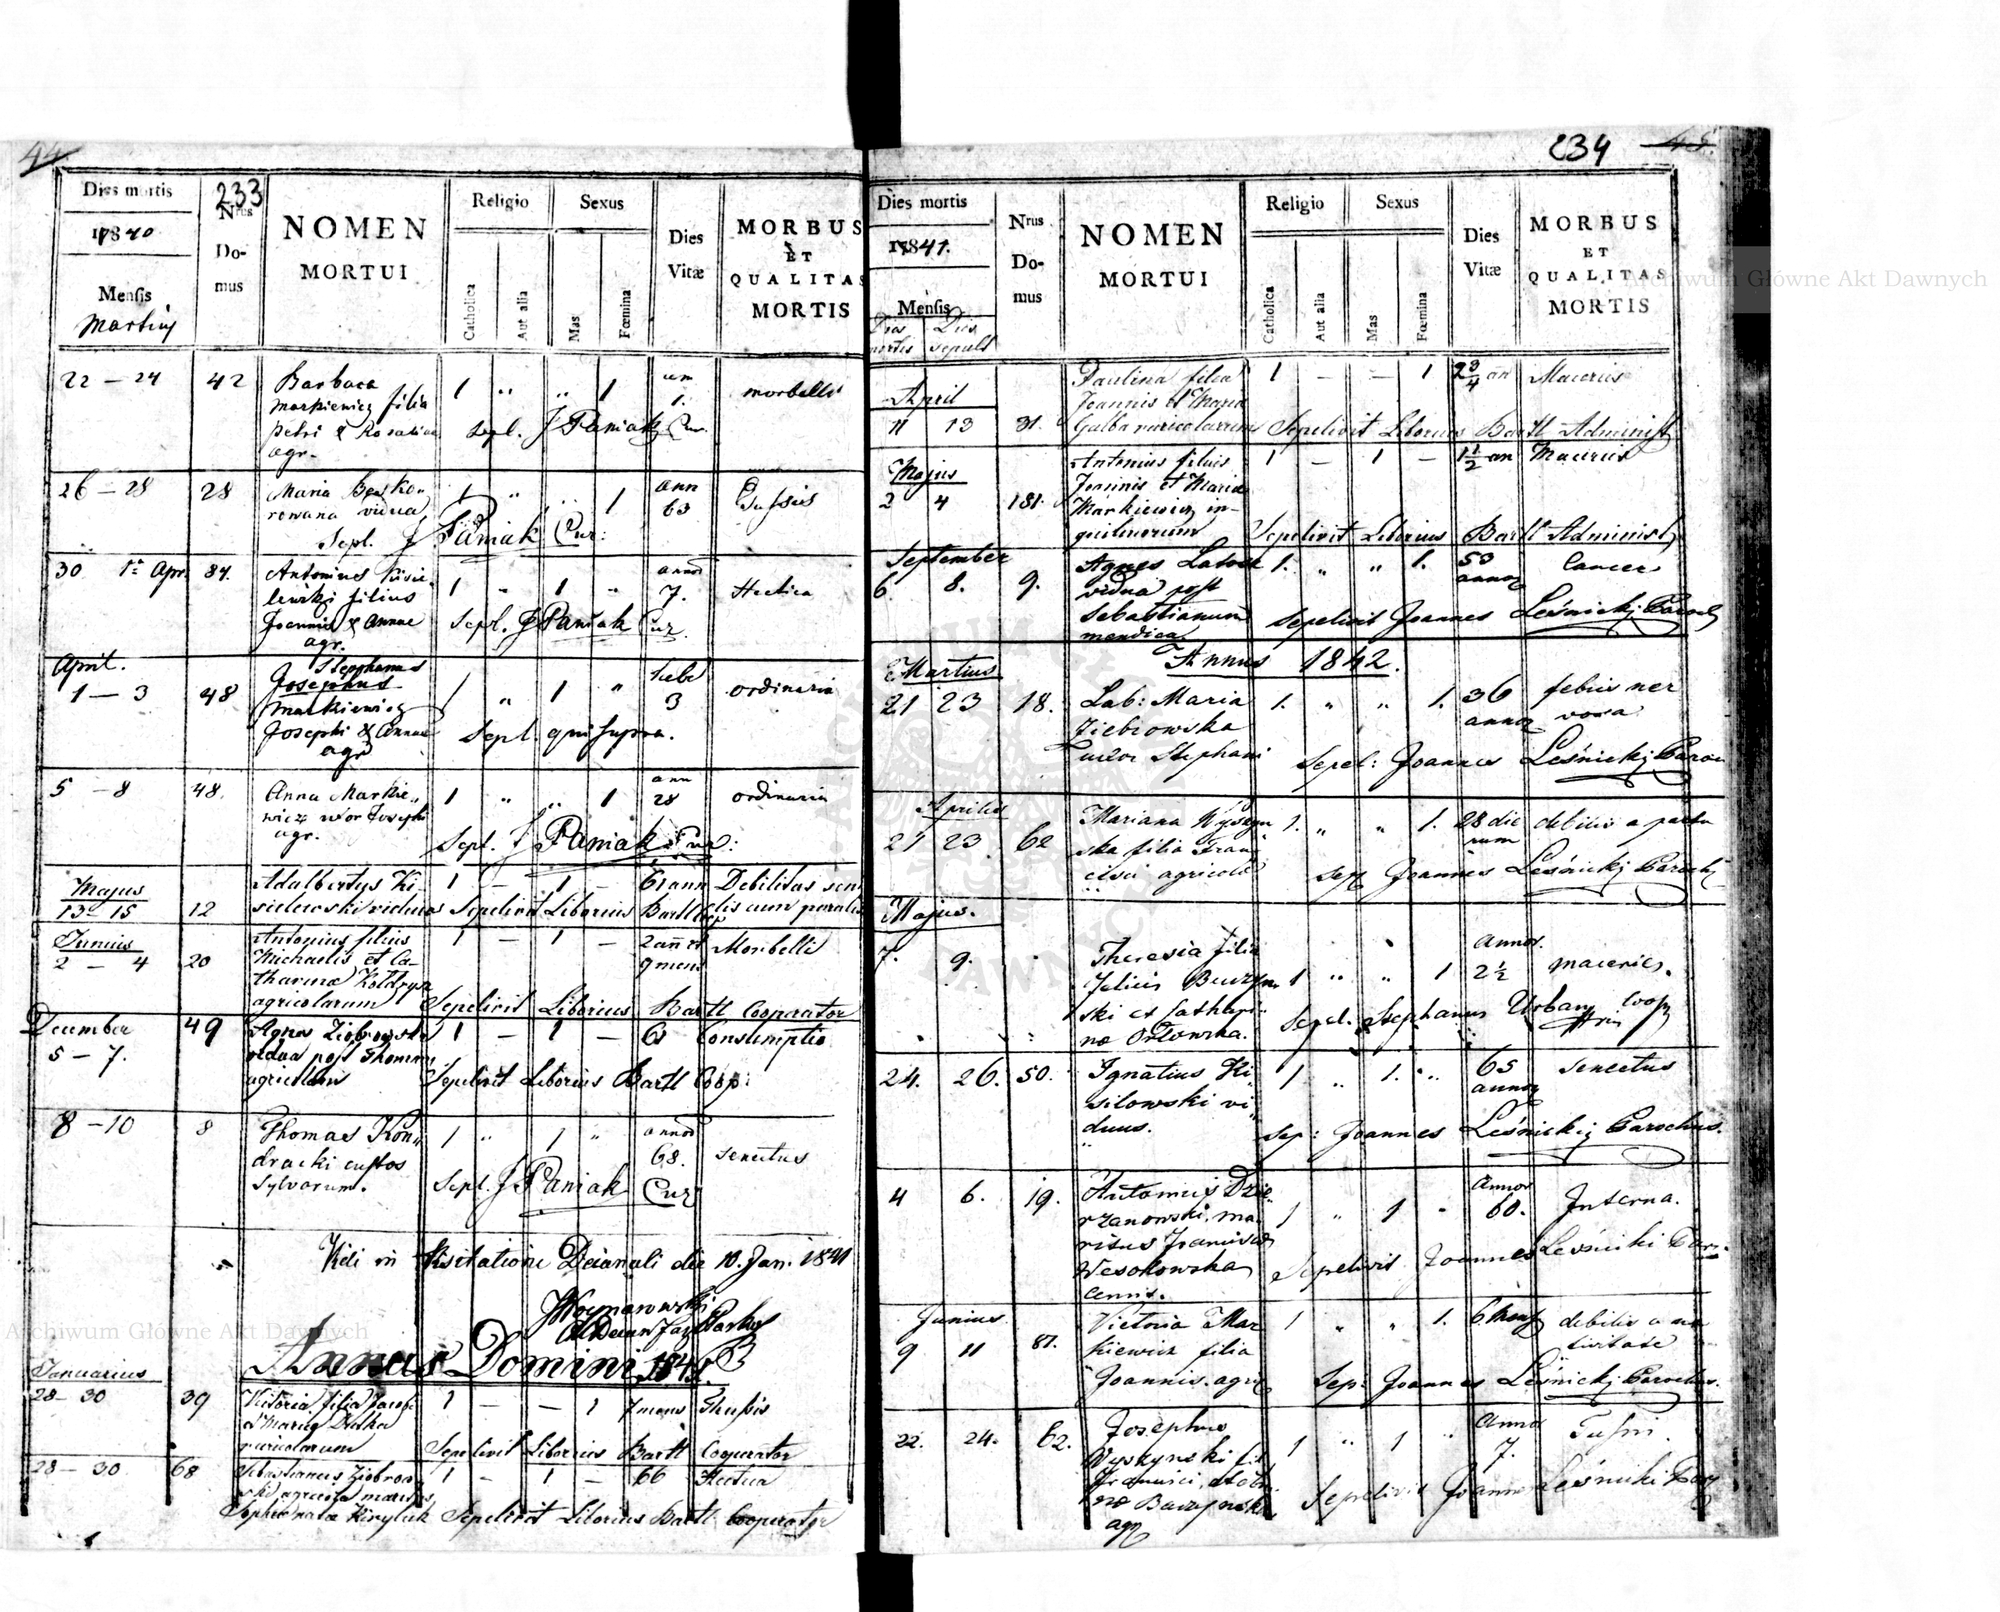 44
233
Dies mortis
1840
Mensis
Martius
Nrus
Do-
mus
NOMEN
MORTUI
Religio
Catholica
Aut alia
Sexus
Mas
Fœmina
Dies
Vitæ
MORBUS
ET
QUALITAS
MORTIS
22 – 24 42 Barbara 1 „ „ 1 1. morbilli
Markiewicz filia
Petri & Rosaliae Sepl. J Paniak Cur.
agr.
26 – 28 28 Maria 1 „ „ 1 ann 63 Tussis
vidua
Sepl. J Paniak Cur:
30 1a Apr. 87. Antonius Kisie- 1 „ 1 „ annor 7. Hectica
lewski filius
Joannis & Annae Sepl. J Paniak Cur.
agr.
April. Stephanus
1 – 3 48 Josephus 1 „ 1 „ 3 ordinaria
Markiewicz
Josephi & Annae Sepl. qui supra.
agr
5 – 8 48. Anna Markie- 1 „ „ 1 ann 28 ordinaria
wicz uxor Josephi
agr. Sepl. J Paniak Cur:
Majus
13 15 12 Adalbertus Ki- 1 – 1 – 61 ann Debilitas
sielewski viduus Sepelivit Liborius Bartl cum
Junius
2 – 4 20 Antonius filius 1 – 1 – 2 ann et 9 mens Morbilli
Michaelis et Ca-
tharina
agricolarum Sepelivit Liborius Bartl Cooperator
December
5 – 7. 49 Agnes 1 – 1 – 61 Consumptio
vidua post Thomam
agricolam Sepelivit Liborius Bartl Coop:
8 – 10 8 Thomas Kon- 1 „ 1 „ annor 68. senectus
dracki custos
sylvarum. Sepl. J Paniak Cur
Vidi in Visitatione Decanali die 10. Jan. 1841
Annus Domini 1841.
Januarius
28 – 30 39 Victoria filia Jacobi 1 – – 1 7 mens Thusis
ruricolarum Sepelivit Liborius Bartl Cooperator
28 – 30 68 Sebastianus 1 – 1 – 66 Hectica
agricola maritus
Sepelivit Liborius Bartl Cooperator
234
45
Dies mortis
1841.
Mensis
Dies mortis
Dies sepult
Nrus
Do-
mus
NOMEN
MORTUI
Religio
Catholica
Aut alia
Sexus
Mas
Fœmina
Dies
Vitæ
MORBUS
ET
QUALITAS
MORTIS
April
11 13 31. Paulina filia 1 – – 1 2 3/4 an Macries
Joannis et Maria
Galba ruricolarum Sepelivit Liborius Bartl Administ
Majus
2 4 181. Antonius filius 1 – 1 – 1 1/2 an Macries
Joannis et Maria
Markiewicz in-
quilinorum Sepelivit Liborius Bartl Administ
September
6. 8. 9. Agnes 1. „ „ 1. 53 annor Cancer
vidua post
Sebastianum Sepelivit Joannes Leśnicki Paroch
mendica
Annus 1842.
Martius
21 23 18. Lab: Maria 1. „ „ 1. 36 annor febris ner
Ziebrowska vosa
uxor Stephani Sepel: Joannes Leśnicki Paroc
Aprilis
21 23 62 Mariana Wyszyn 1. „ „ 1. 28 die rum debilis a partu
ska filia Fran
cisci agricolae Sep Joannes Leśnicki Parochus
Majus.
7. 9. Theresia filia 1 „ „ 1 annor. 2 1/2 macries.
Felicis Buczyn
ski et Cathari- Sepel. Stephanus Urbany Coop
na Orłowska.
24. 26. 50. Ignatius Ki 1 „ 1. „ 65 annor senectus
silowski vi
duus. Sep: Joannes Leśnicki Parochus.
4 6. 19. Antonius Dzie- 1 „ 1 „ annor 60. Interna.
rzanowski, ma-
ritus Francisca
Wesołowska Sepelivit Joannes Leśnicki Par.
Junius
9 11 87. Victoria Mar 1 „ „ 1. 6 Mens debilis a na
kiewicz filia tivitate
Joannis agr Sep: Joannes Leśnicki Parochus.
22. 24. 62. Josephus 1 „ 1 „ Anno 7. Tussi.
Wyszynski fil
Francisci,
Buczynska Sepelivit Joannes Leśnicki Par
agr
Archiwum Główne Akt Dawnych
Archiwum Główne Akt Dawnych